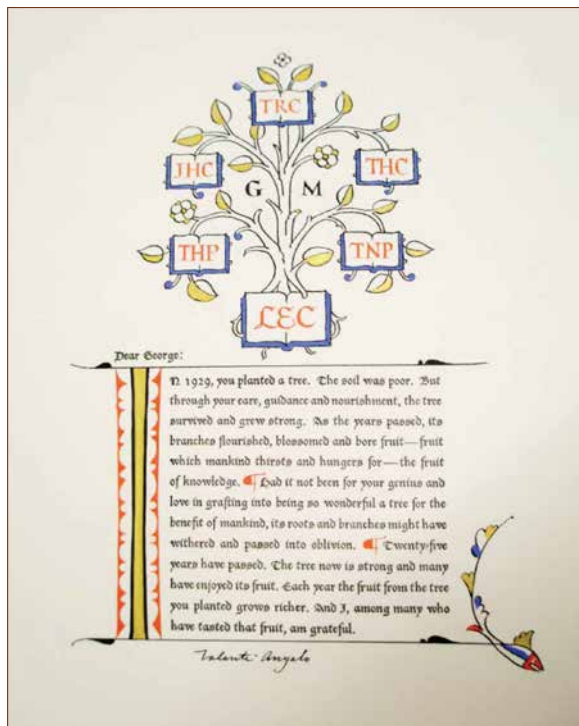 TRC
JHC
THC
G M
THP
TNP
LEC
Dear George:
IN 1929, you planted a tree. The soil was poor. But
through your care, guidance and nourishment, the tree
survived and grew strong. As the years passed, its
branches flourished, blossomed and bore fruit—fruit
which mankind thirsts and hungers for—the fruit
of knowledge. ¶ Had it not been for your genius and
love in grafting into being so wonderful a tree for the
benefit of mankind, its roots and branches might have
withered and passed into oblivion. ¶ Twenty-five
years have passed. The tree now is strong and many
have enjoyed its fruit. Each year the fruit from the tree
you planted grows richer. And I, among many who
have tasted that fruit, am grateful.
Valenti Angelo